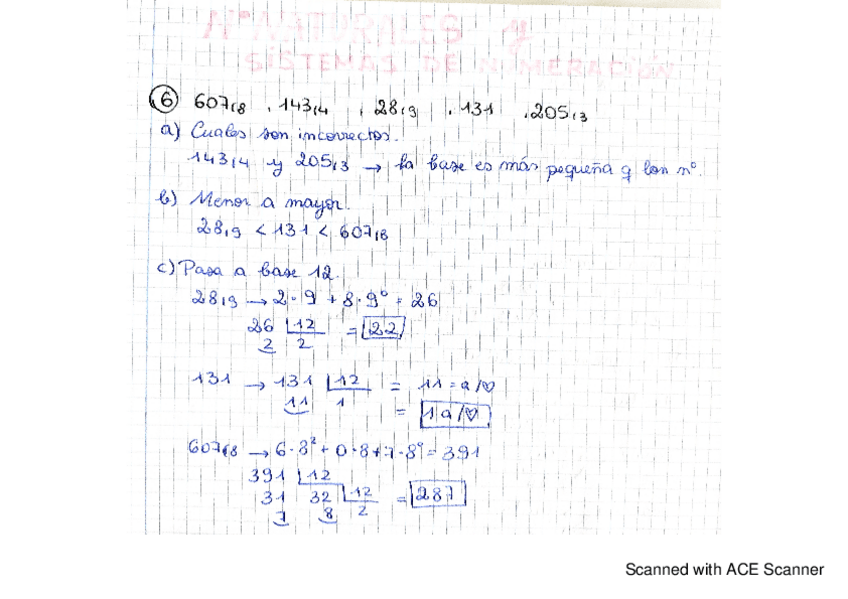 Nº NATURALES y
SISTEMAS DE NUMERACIÓN
⑥ 607₍₈ , 143₍₄ , 28₍₉ , 131 , 205₍₃
a) Cuales son incorrectos.
143₍₄ y 205₍₃ → la base es más pequeña q los nº.
b) Menor a mayor.
28₍₉ < 131 < 607₍₈
c) Pasa a base 12.
28₍₉ → 2·9 + 8·9⁰ = 26
26 | 12 = 22
2 2
131 → 131 | 12 = 11 = a/♡
11 1 = 1a/♡
607₍₈ → 6·8² + 0·8 + 7·8⁰ = 391
391 | 12
31 32 | 12 = 287
7 8 2
Scanned with ACE Scanner